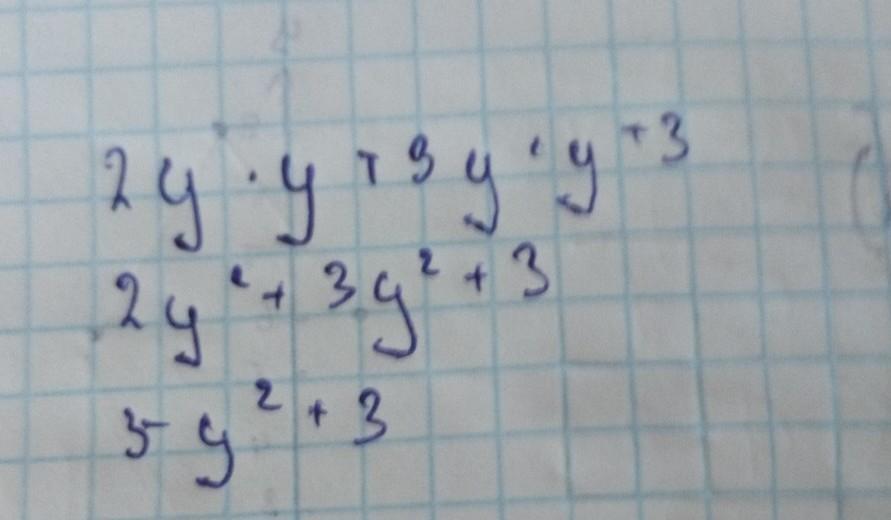 2y · y + 3y · y + 3
2y² + 3y² + 3
5y² + 3